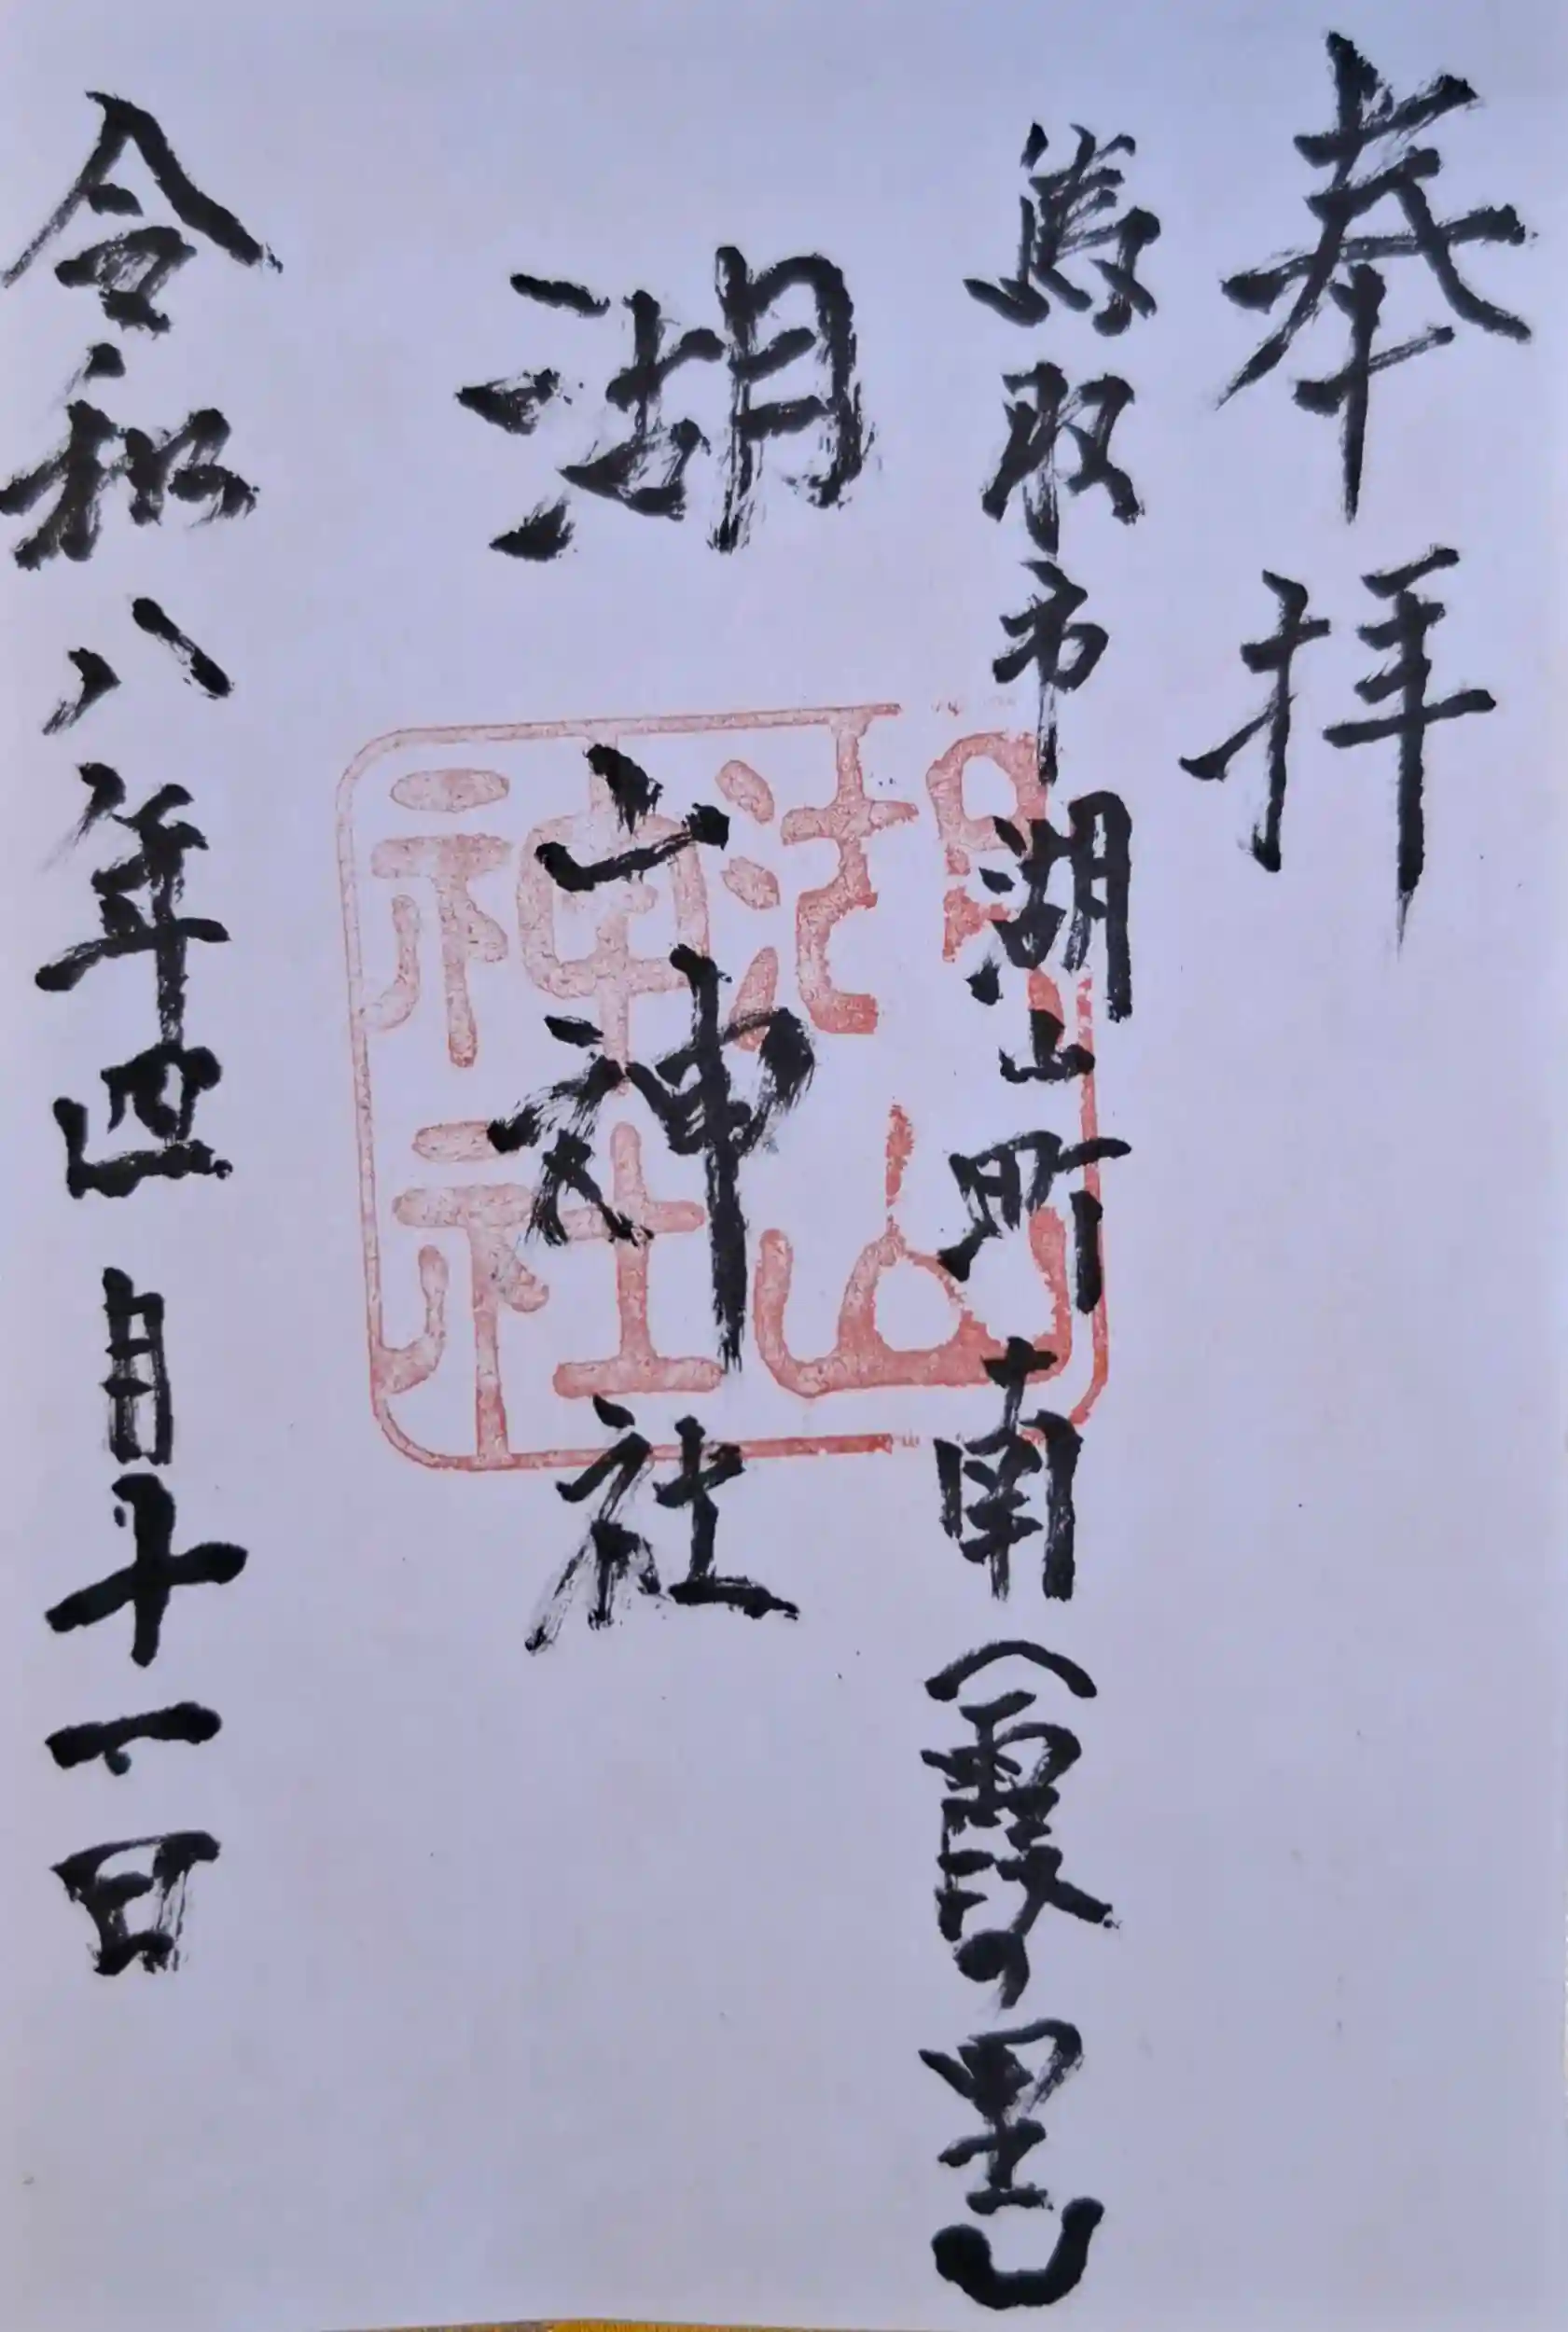 奉拝
鳥取市湖山町南(霞の里)
湖山神社
湖山神社
令和八年四月十一日